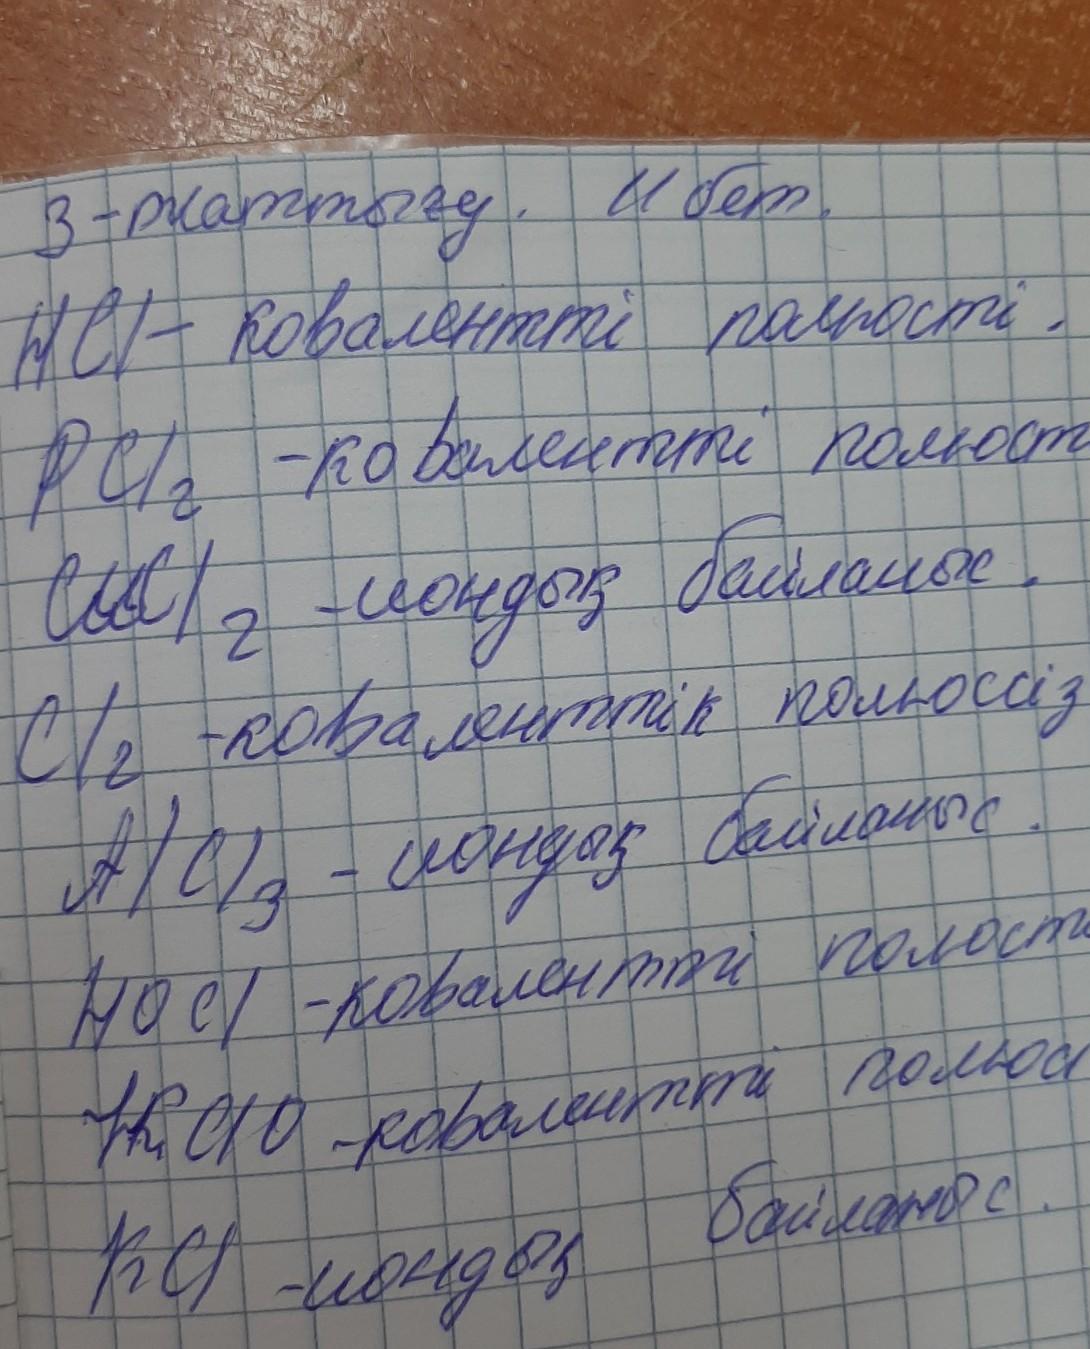 3-жаттығу. 11 бет.
HCl - ковалентті полюсті.
PCl2 - ковалентті полюст
CuCl2 - иондық байланыс.
Cl2 - коваленттік полюссіз
AlCl3 - иондық байланыс.
HOCl - ковалентті полюсті
KClO - ковалентті полюс
KCl - иондық байланыс.